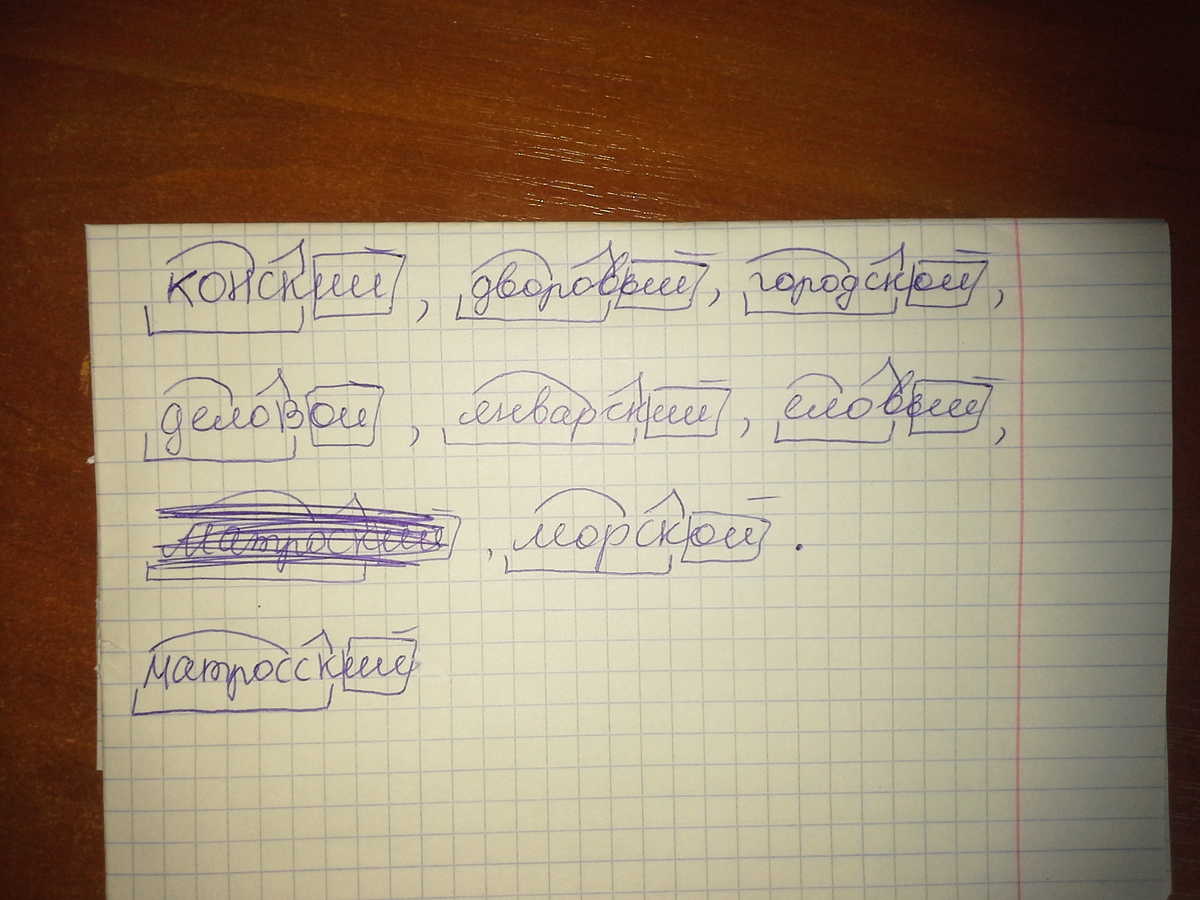 конский, дворовый, городской,
деловой, январский, еловый,
матроский, морской.
матросский